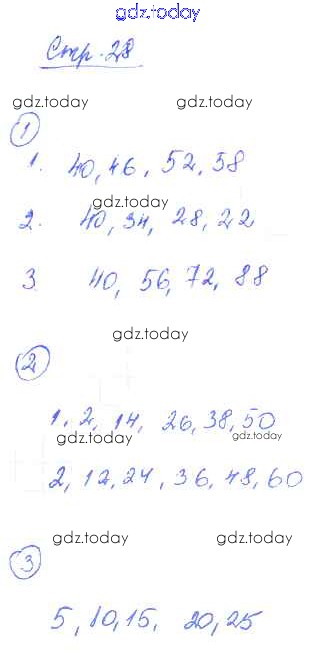 gdz.today
Стр. 28
gdz.today gdz.today
1
1. 40, 46, 52, 58
gdz.today
2. 40, 34, 28, 22
3 40, 56, 72, 88
gdz.today
2
1. 2, 14, 26, 38, 50
gdz.today gdz.today
2, 12, 24, 36, 48, 60
gdz.today gdz.today
3
5, 10, 15, 20, 25
gdz.today